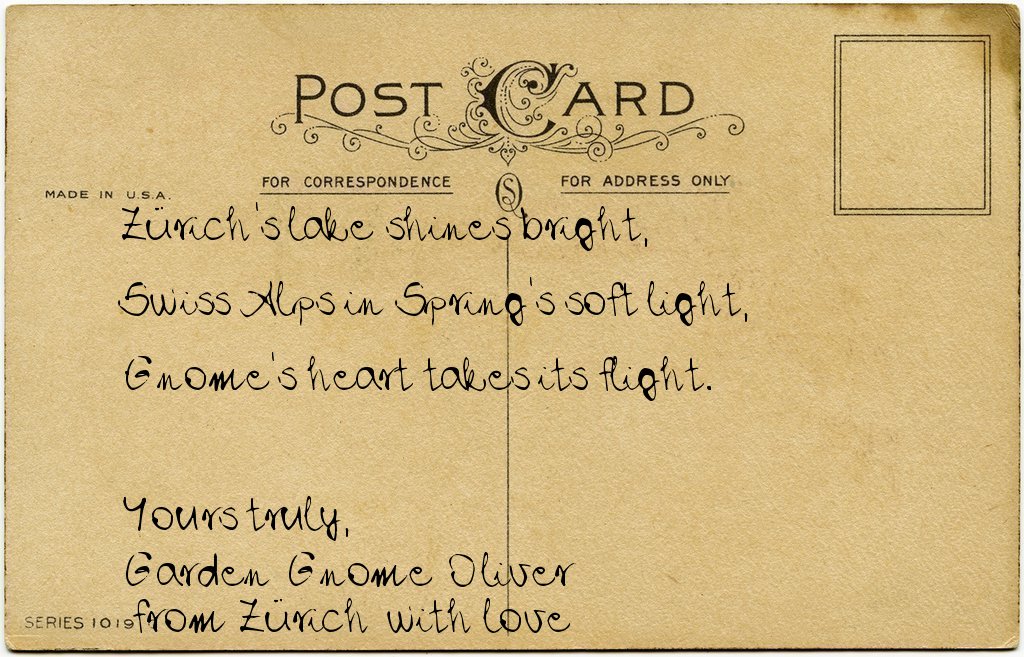 POST CARD
FOR CORRESPONDENCE
FOR ADDRESS ONLY
MADE IN U.S.A.
Zürich's lake shines bright,
Swiss Alps in Spring's soft light,
Gnome's heart takes its flight.
Yours truly,
Garden Gnome Oliver
from Zürich with love
SERIES 1019